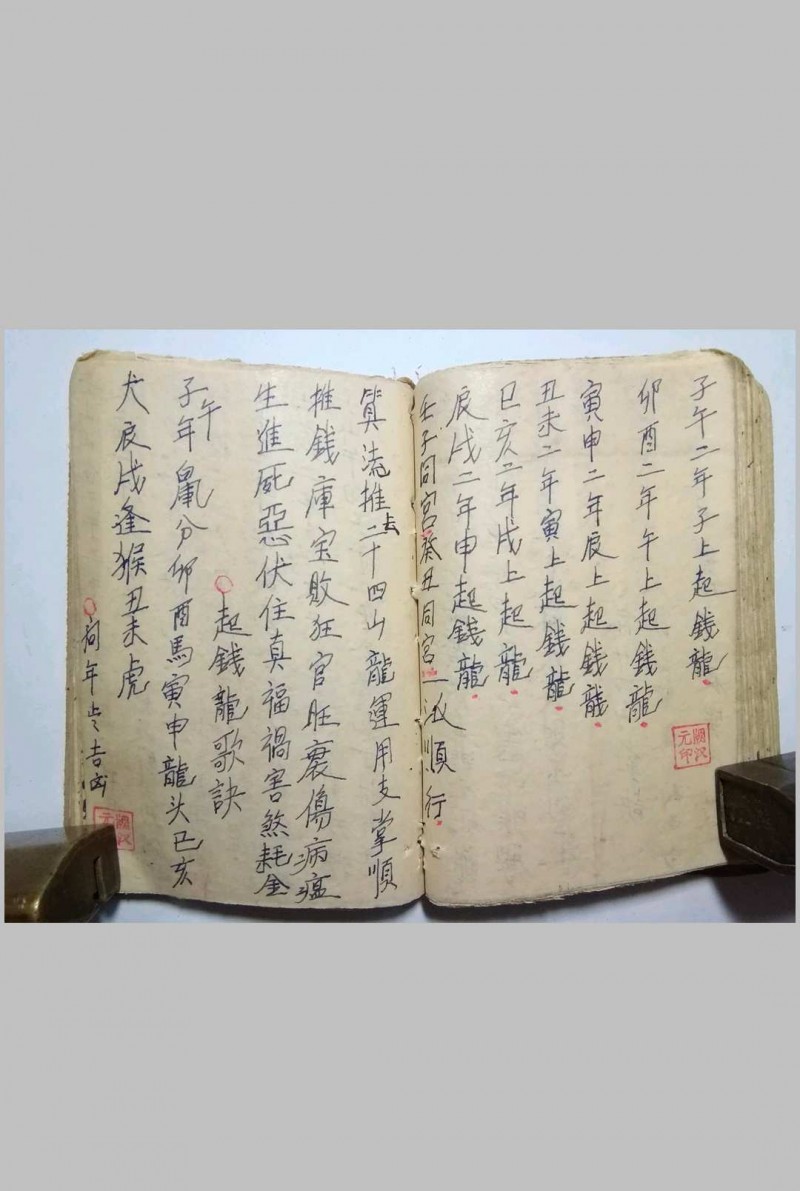 子午二年子上起錢龍
卯酉二年午上起錢龍
寅申二年辰上起錢龍
丑未二年寅上起錢龍
巳亥二年戌上起龍
辰戌二年申起錢龍
壬子同宮癸丑同宮一派順行
算流推去二十四山龍運用支掌順
推錢庫宝敗狂官旺衰傷病瘟
生進死惡伏住真福禍害煞耗金
起錢龍歌訣
子午年鼠分卯酉馬寅申龍头巳亥
犬辰戌逢猴丑未虎
年
國汉元印
國汉元